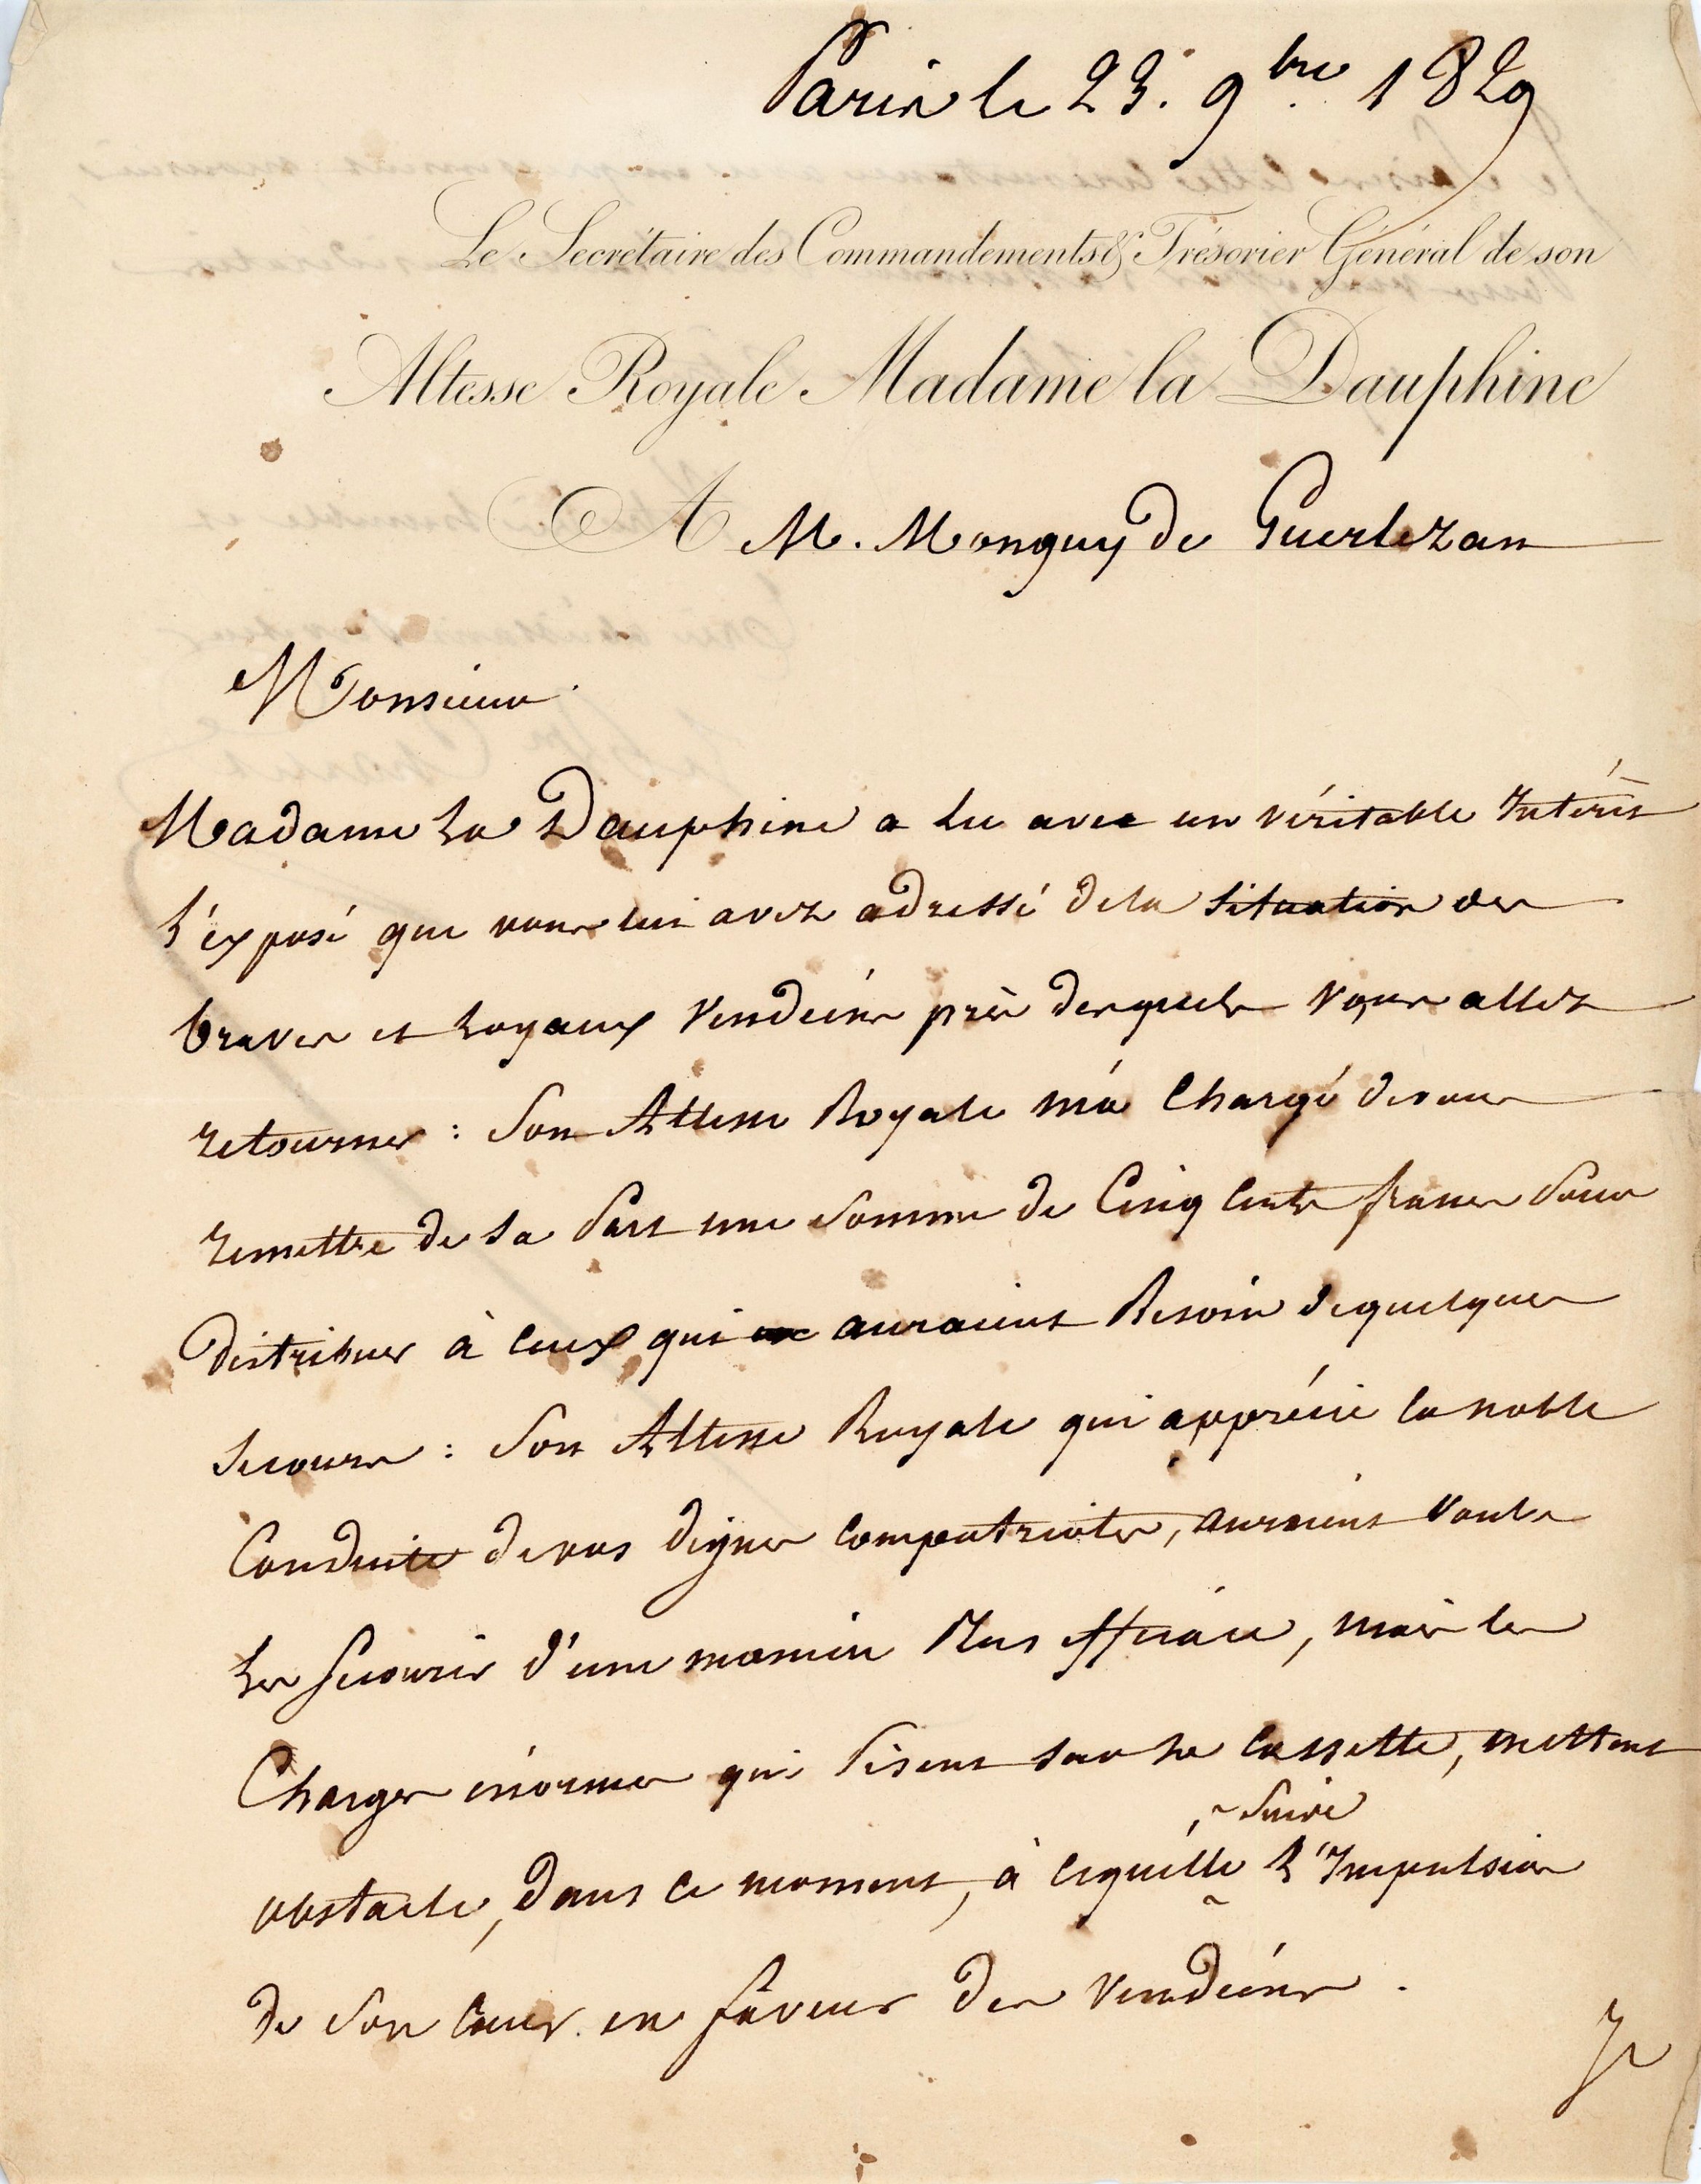 Paris le 23. 9bre 1829
Le Secrétaire des Commandements & Trésorier Général de son
Altesse Royale Madame la Dauphine
A M. Monguy de Guerlezan
Monsieur
Madame La Dauphine a lu avec un véritable Intérêt
L'exposé que vous lui avez adressé de la situation des
braves et Loyaux Vendéens près desquels vous allez
retourner : Son Altesse Royale m'a Chargé de vous
remettre de sa Part une Somme de Cinq Cents francs Pour
Distribuer à Ceux qui auraient Besoin de quelques
Secours : Son Altesse Royale qui apprécie la noble
Conduite de vos dignes Compatriotes, auraient voulu
Les Secourir d'une manière Plus efficace, mais les
Charges énormes qui Pèsent sur Sa Cassette, mettent
Suive
obstacle, Dans ce moment, à ce qu'elle L'Impulsion
De Son Cœur en faveur Des Vendéens.
Je